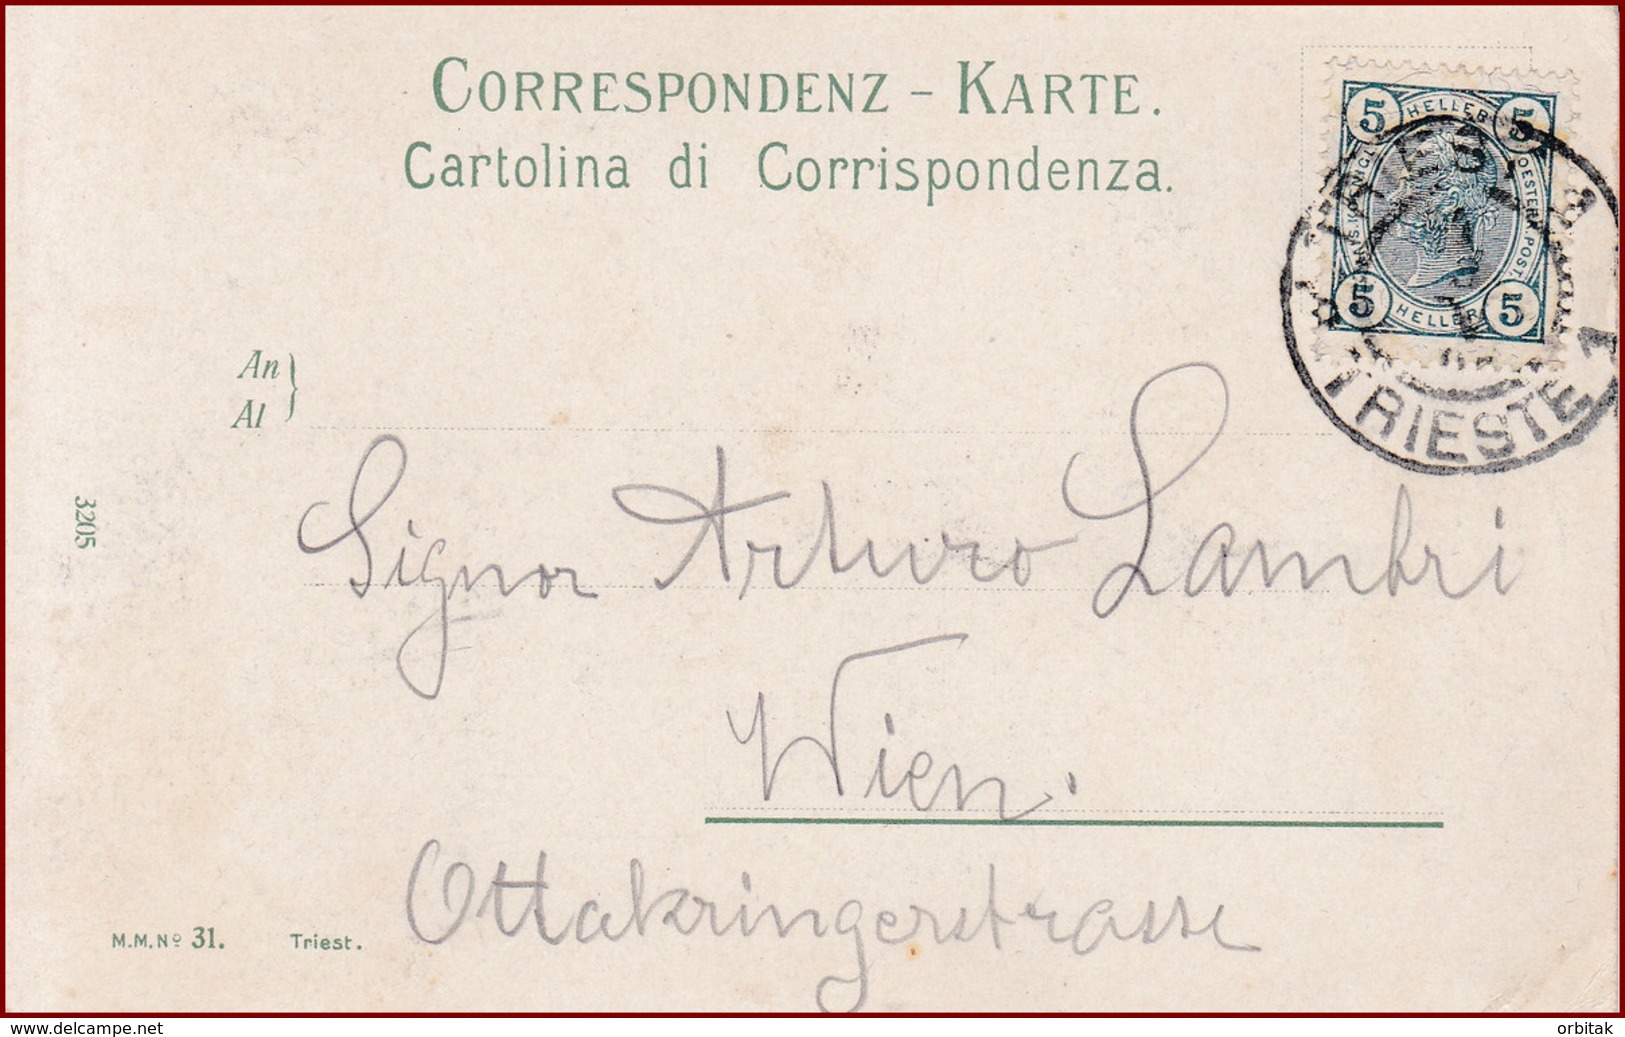 CORRESPONDENZ - KARTE.
Cartolina di Corrispondenza.
5 HELLER 5
OESTERR. POST.
5 HELLER 5
TRIEST
TRIESTE 1
An
Al
Signor Arturo Lambri
Wien.
Ottakringerstrasse
3205
M.M.Nº 31. Triest.
www.delcampe.net
orbitak